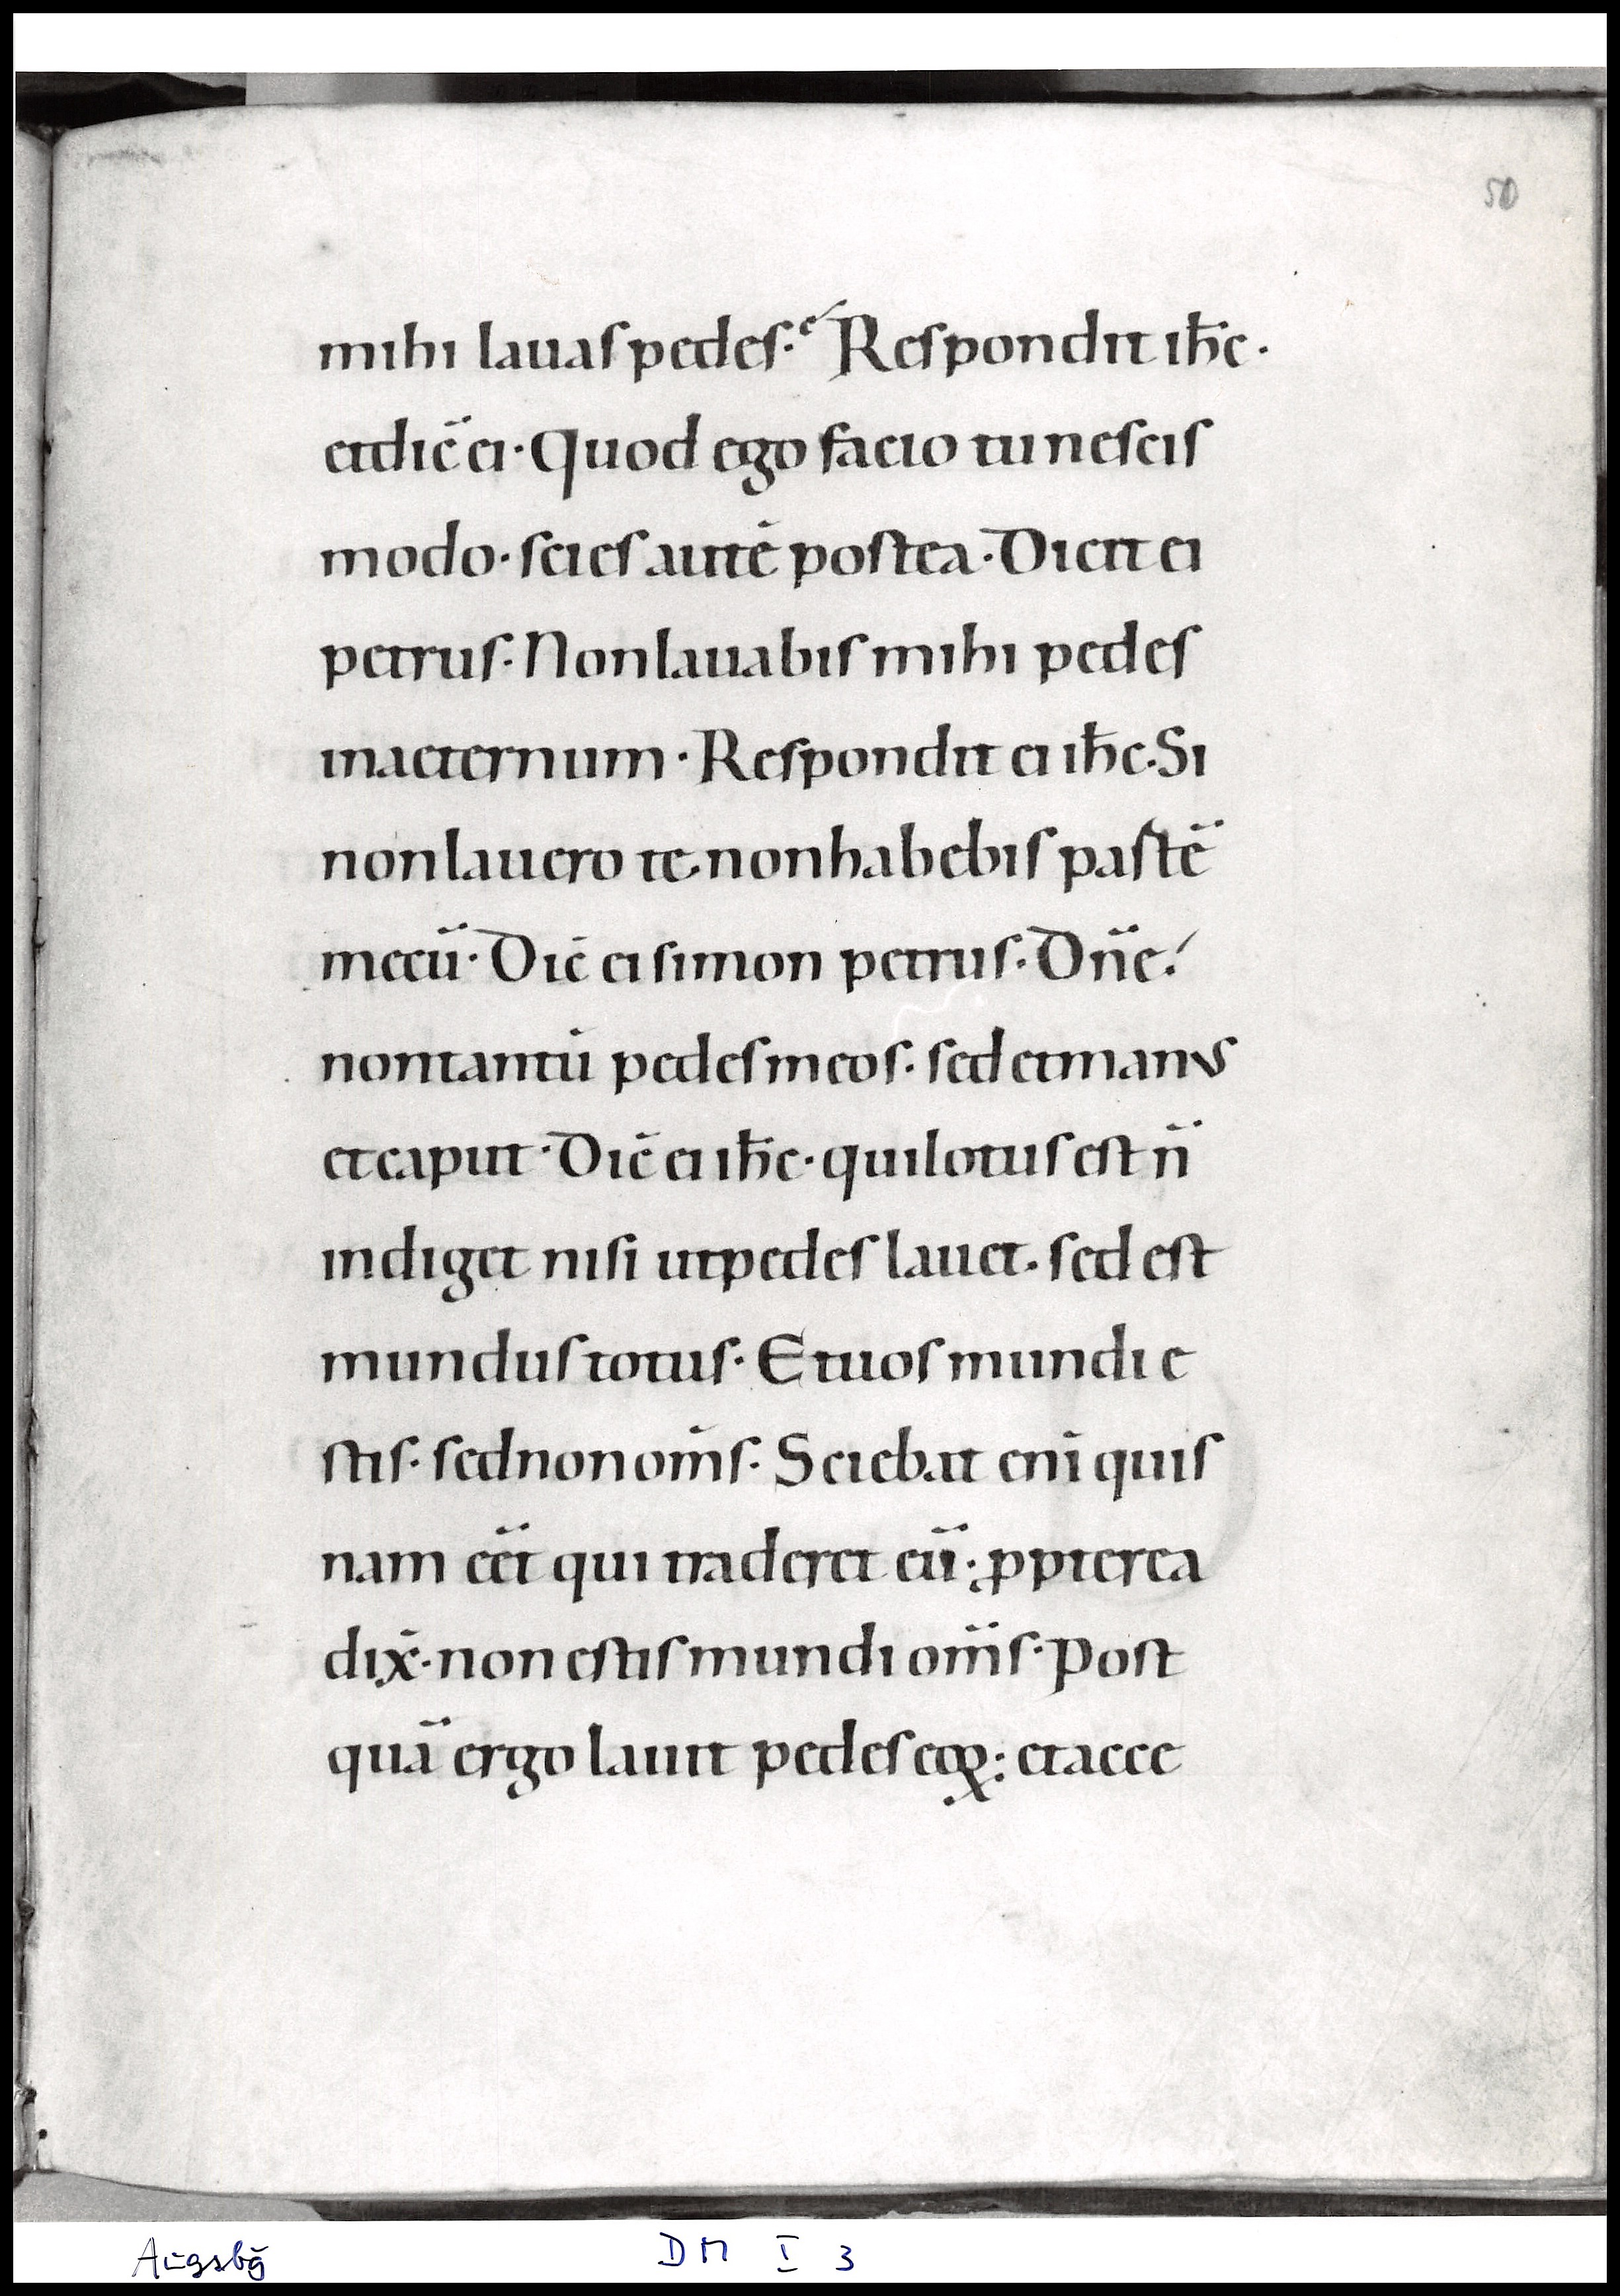 50
mihi lauas pedes. Respondit ih̅c.
et dic̅ ei. Quod ego facio tu nescis
modo. scies aute̅ postea. Dicit ei
petrus. Non lauabis mihi pedes
in aeternum. Respondit ei ih̅c. Si
non lauero te. non habebis parte̅
mecu̅. Dic̅ ei simon petrus. Dn̅e.
non tantu̅ pedes meos. sed et manus
et caput. Dic̅ ei ih̅c. qui lotus est n̅
indiget nisi ut pedes lauet. sed est
mundus totus. Et uos mundi e
stis. sed non om̅s. Sciebat eni̅ quis
nam ee̅t qui traderet eu̅. ꝓpterea
dix̅. non estis mundi om̅s. Post
qua̅ ergo lauit pedes eoꝝ: et acce
Augsbg
DM I 3